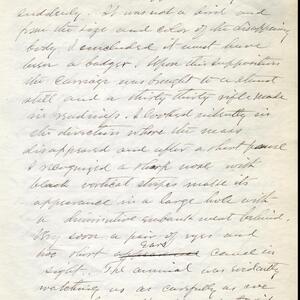 suddenly. It was not a bird and
from the size and color of the disappearing
body, I concluded it must have
been a badger. Upon this supposition
the carriage was brought to a
still and a thirty thirty rifle made
in readiness. I looked intently in
the direction where the mass
disappeared and after a short pause
I recognized a sharp nose with
black vertical stripes make its
appearance in a large hole with
a diminutive embankment behind.
Very soon a pair of eyes and
two short ears came in
sight. The animal was evidently
watching us as carefully as we